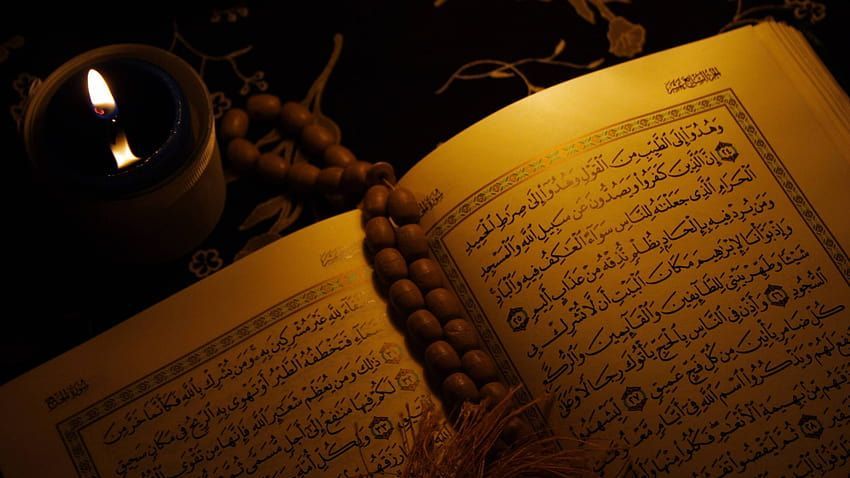 الجزء السابع عشر
سورة الحج
وَهُدُوٓا۟ إِلَى ٱلطَّيِّبِ مِنَ ٱلْقَوْلِ وَهُدُوٓا۟ إِلَىٰ صِرَٰطِ ٱلْحَمِيدِ
٢٤ إِنَّ ٱلَّذِينَ كَفَرُوا۟ وَيَصُدُّونَ عَن سَبِيلِ ٱللَّهِ وَٱلْمَسْجِدِ
ٱلْحَرَامِ ٱلَّذِى جَعَلْنَٰهُ لِلنَّاسِ سَوَآءً ٱلْعَٰكِفُ فِيهِ وَٱلْبَادِ
وَمَن يُرِدْ فِيهِ بِإِلْحَادٍۭ بِظُلْمٍ نُّذِقْهُ مِنْ عَذَابٍ أَلِيمٍ ٢٥
وَإِذْ بَوَّأْنَا لِإِبْرَٰهِيمَ مَكَانَ ٱلْبَيْتِ أَن لَّا تُشْرِكْ بِى
شَيْـًٔا وَطَهِّرْ بَيْتِىَ لِلطَّآئِفِينَ وَٱلْقَآئِمِينَ وَٱلرُّكَّعِ
ٱلسُّجُودِ ٢٦ وَأَذِّن فِى ٱلنَّاسِ بِٱلْحَجِّ يَأْتُوكَ رِجَالًا وَعَلَىٰ
كُلِّ ضَامِرٍ يَأْتِينَ مِن كُلِّ فَجٍّ عَمِيقٍ ٢٧ لِّيَشْهَدُوا۟
لَهُمْ وَيَذْكُرُوا۟ ٱسْمَ ٱللَّهِ فِىٓ أَيَّامٍ مَّعْلُومَٰتٍ
مِّنۢ بَهِيمَةِ ٱلْأَنْعَٰمِ فَكُلُوا۟ مِنْهَا
ثُمَّ لْيَقْضُوا۟
سورة الحج
لِلَّهِ غَيْرَ مُشْرِكِينَ بِهِۦ وَمَن يُشْرِكْ بِٱللَّهِ فَكَأَنَّمَا خَرَّ مِنَ
فَتَخْطَفُهُ ٱلطَّيْرُ أَوْ تَهْوِى بِهِ ٱلرِّيحُ فِى مَكَانٍ سَحِيقٍ
ذَٰلِكَ وَمَن يُعَظِّمْ شَعَٰٓئِرَ ٱللَّهِ فَإِنَّهَا مِن تَقْوَى
لَكُمْ فِيهَا مَنَٰفِعُ إِلَىٰٓ أَجَلٍ مُّسَمًّى ثُمَّ
٣٣ وَلِكُلِّ أُمَّةٍ